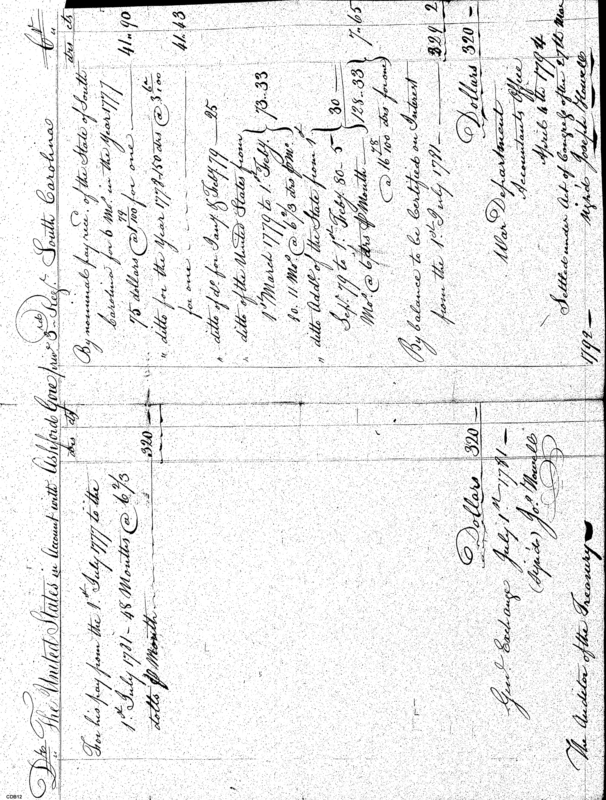 Dr The United States in Account with Ashford Gore priv. 3rd Regt. South Carolina Cr
drs cts
For his pay from the 1st July 1777 to the
1st July 1781 - 48 Months @ 6 2/3
dolls Month 320
Dollars 320
Exchange July 1st 1781
(Signed) Jos. Howell
The Auditor of the Treasury
drs cts
By nominal pay rec. of the State of South
Carolina for 6 Mos. in the Year 1777
75 dollars @ 100 for one 41.90
" ditto for the Year 1778 - 150 drs @ 3 100
for one 41.43
" ditto of do. for Jany. & Feby. 79 25
" ditto of the United States from
1st March 1779 to 1st Feby.
80. 11 Mos. @ 6 2/3 drs Mo. 73.33
" ditto Addl. of the State from 1st
Sept. 79 to 1st Feby. 80 - 5 30
Mos. @ 6 drs Month 128.33
@ 16 78/100 drs for one 7.65
By balance to be Certified on Interest
from the 1st July 1781
Dollars 320
War Department
Accountants Office
April 8th 1794
Settled under Act of Congress of 27th Mar
1792 Signed Joseph Howell
CDB12